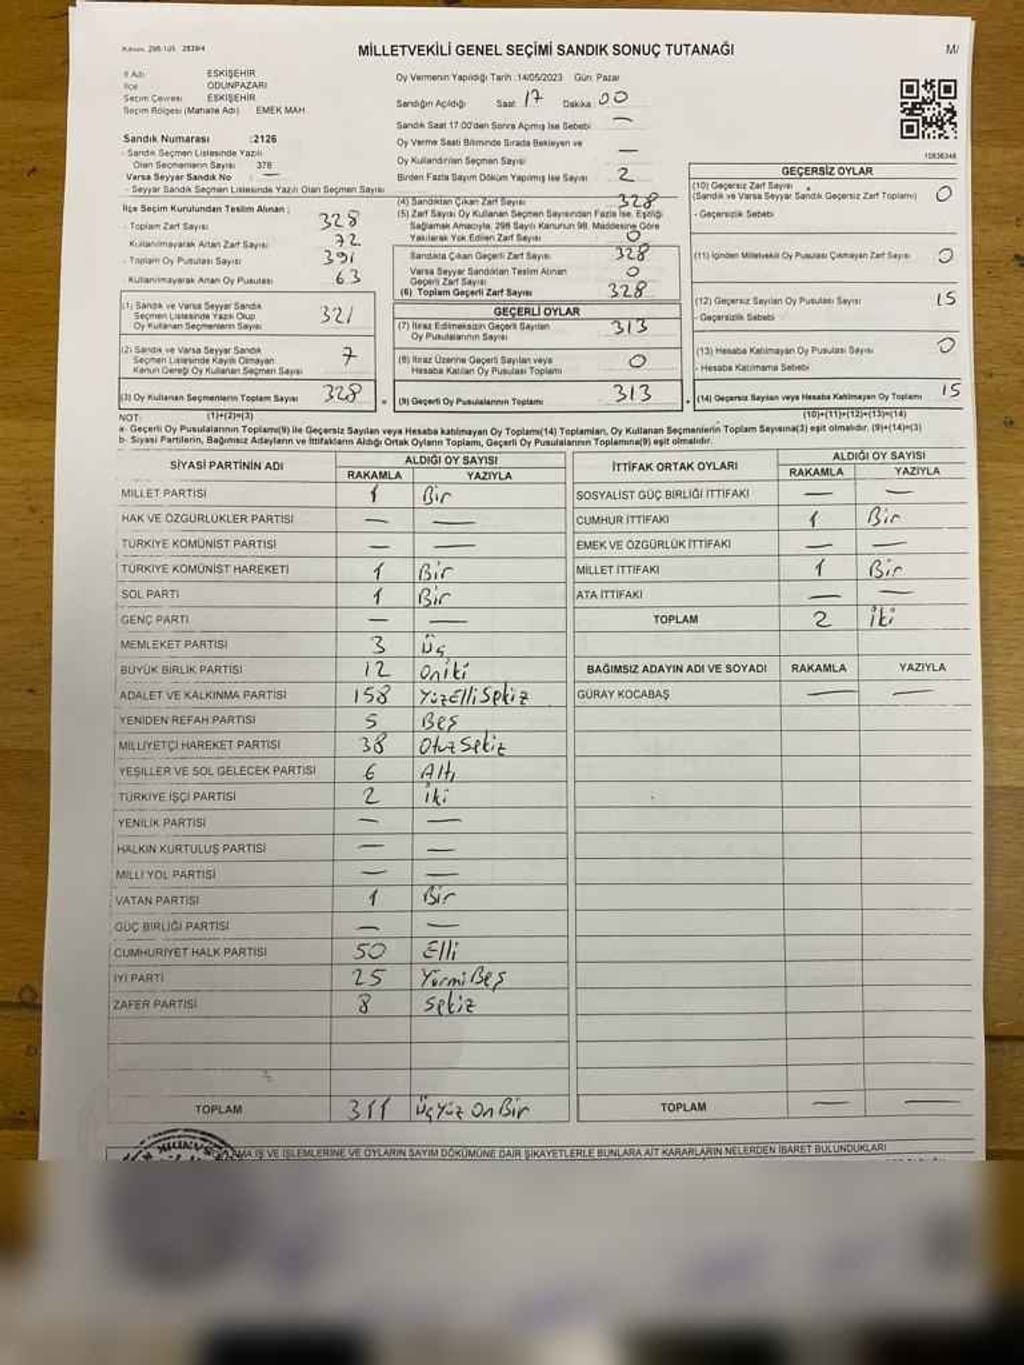 Kanun: 298/105, 2839/4
MİLLETVEKİLİ GENEL SEÇİMİ SANDIK SONUÇ TUTANAĞI
M/
İl Adı ESKİŞEHİR
İlçe ODUNPAZARI
Seçim Çevresi ESKİŞEHİR
Seçim Bölgesi (Mahalle Adı) EMEK MAH.
Sandık Numarası :2126
- Sandık Seçmen Listesinde Yazılı
Olan Seçmenlerin Sayısı 378
Varsa Seyyar Sandık No —
- Seyyar Sandık Seçmen Listesinde Yazılı Olan Seçmen Sayısı
Oy Vermenin Yapıldığı Tarih :14/05/2023 Gün: Pazar
Sandığın Açıldığı Saat 17 Dakika 00
Sandık Saat 17:00'den Sonra Açılmış İse Sebebi —
Oy Verme Saati Bitiminde Sırada Bekleyen ve
Oy Kullandırılan Seçmen Sayısı —
Birden Fazla Sayım Döküm Yapılmış İse Sayısı 2
10836348
İlçe Seçim Kurulundan Teslim Alınan ;
- Toplam Zarf Sayısı 328
Kullanılmayarak Artan Zarf Sayısı 72
- Toplam Oy Pusulası Sayısı 391
Kullanılmayarak Artan Oy Pusulası 63
(1) Sandık ve Varsa Seyyar Sandık
Seçmen Listesinde Yazılı Olup
Oy Kullanan Seçmenlerin Sayısı 321
(2) Sandık ve Varsa Seyyar Sandık
Seçmen Listesinde Kayıtlı Olmayan
Kanun Gereği Oy Kullanan Seçmen Sayısı 7
(3) Oy Kullanan Seçmenlerin Toplam Sayısı 328
(1)+(2)=(3)
(4) Sandıktan Çıkan Zarf Sayısı 328
(5) Zarf Sayısı Oy Kullanan Seçmen Sayısından Fazla İse, Eşitliği
Sağlamak Amacıyla, 298 Sayılı Kanunun 98. Maddesine Göre
Yakılarak Yok Edilen Zarf Sayısı 0
Sandıkta Çıkan Geçerli Zarf Sayısı 328
Varsa Seyyar Sandıktan Teslim Alınan
Geçerli Zarf Sayısı 0
(6) Toplam Geçerli Zarf Sayısı 328
GEÇERLİ OYLAR
(7) İtiraz Edilmeksizin Geçerli Sayılan
Oy Pusulalarının Sayısı 313
(8) İtiraz Üzerine Geçerli Sayılan veya
Hesaba Katılan Oy Pusulası Toplamı 0
(9) Geçerli Oy Pusulalarının Toplamı 313
GEÇERSİZ OYLAR
(10) Geçersiz Zarf Sayısı
(Sandık ve Varsa Seyyar Sandık Geçersiz Zarf Toplamı) 0
- Geçersizlik Sebebi
(11) İçinden Milletvekili Oy Pusulası Çıkmayan Zarf Sayısı 0
(12) Geçersiz Sayılan Oy Pusulası Sayısı 15
- Geçersizlik Sebebi
(13) Hesaba Katılmayan Oy Pusulası Sayısı 0
- Hesaba Katılmama Sebebi
(14) Geçersiz Sayılan veya Hesaba Katılmayan Oy Toplamı 15
(10)+(11)+(12)+(13)=(14)
NOT:
a- Geçerli Oy Pusulalarının Toplamı(9) ile Geçersiz Sayılan veya Hesaba katılmayan Oy Toplamı(14) Toplamları, Oy Kullanan Seçmenlerin Toplam Sayısına(3) eşit olmalıdır. (9)+(14)=(3)
b- Siyasi Partilerin, Bağımsız Adayların ve İttifakların Aldığı Ortak Oyların Toplamı, Geçerli Oy Pusulalarının Toplamına(9) eşit olmalıdır.
SİYASİ PARTİNİN ADI ALDIĞI OY SAYISI
RAKAMLA YAZIYLA
MİLLET PARTİSİ 1 Bir
HAK VE ÖZGÜRLÜKLER PARTİSİ — —
TÜRKİYE KOMÜNİST PARTİSİ — —
TÜRKİYE KOMÜNİST HAREKETİ 1 Bir
SOL PARTİ 1 Bir
GENÇ PARTİ — —
MEMLEKET PARTİSİ 3 Üç
BÜYÜK BİRLİK PARTİSİ 12 Oniki
ADALET VE KALKINMA PARTİSİ 158 YüzElliSekiz
YENİDEN REFAH PARTİSİ 5 Beş
MİLLİYETÇİ HAREKET PARTİSİ 38 OtuzSekiz
YEŞİLLER VE SOL GELECEK PARTİSİ 6 Altı
TÜRKİYE İŞÇİ PARTİSİ 2 İki
YENİLİK PARTİSİ — —
HALKIN KURTULUŞ PARTİSİ — —
MİLLİ YOL PARTİSİ — —
VATAN PARTİSİ 1 Bir
GÜÇ BİRLİĞİ PARTİSİ — —
CUMHURİYET HALK PARTİSİ 50 Elli
İYİ PARTİ 25 YirmiBeş
ZAFER PARTİSİ 8 Sekiz
TOPLAM 311 ÜçYüz OnBir
İTTİFAK ORTAK OYLARI ALDIĞI OY SAYISI
RAKAMLA YAZIYLA
SOSYALİST GÜÇ BİRLİĞİ İTTİFAKI — —
CUMHUR İTTİFAKI 1 Bir
EMEK VE ÖZGÜRLÜK İTTİFAKI — —
MİLLET İTTİFAKI 1 Bir
ATA İTTİFAKI — —
TOPLAM 2 İki
BAĞIMSIZ ADAYIN ADI VE SOYADI RAKAMLA YAZIYLA
GÜRAY KOCABAŞ — —
TOPLAM — —
İŞ VE İŞLEMLERİNE VE OYLARIN SAYIM DÖKÜMÜNE DAİR ŞİKAYETLERLE BUNLARA AİT KARARLARIN NELERDEN İBARET BULUNDUKLARI